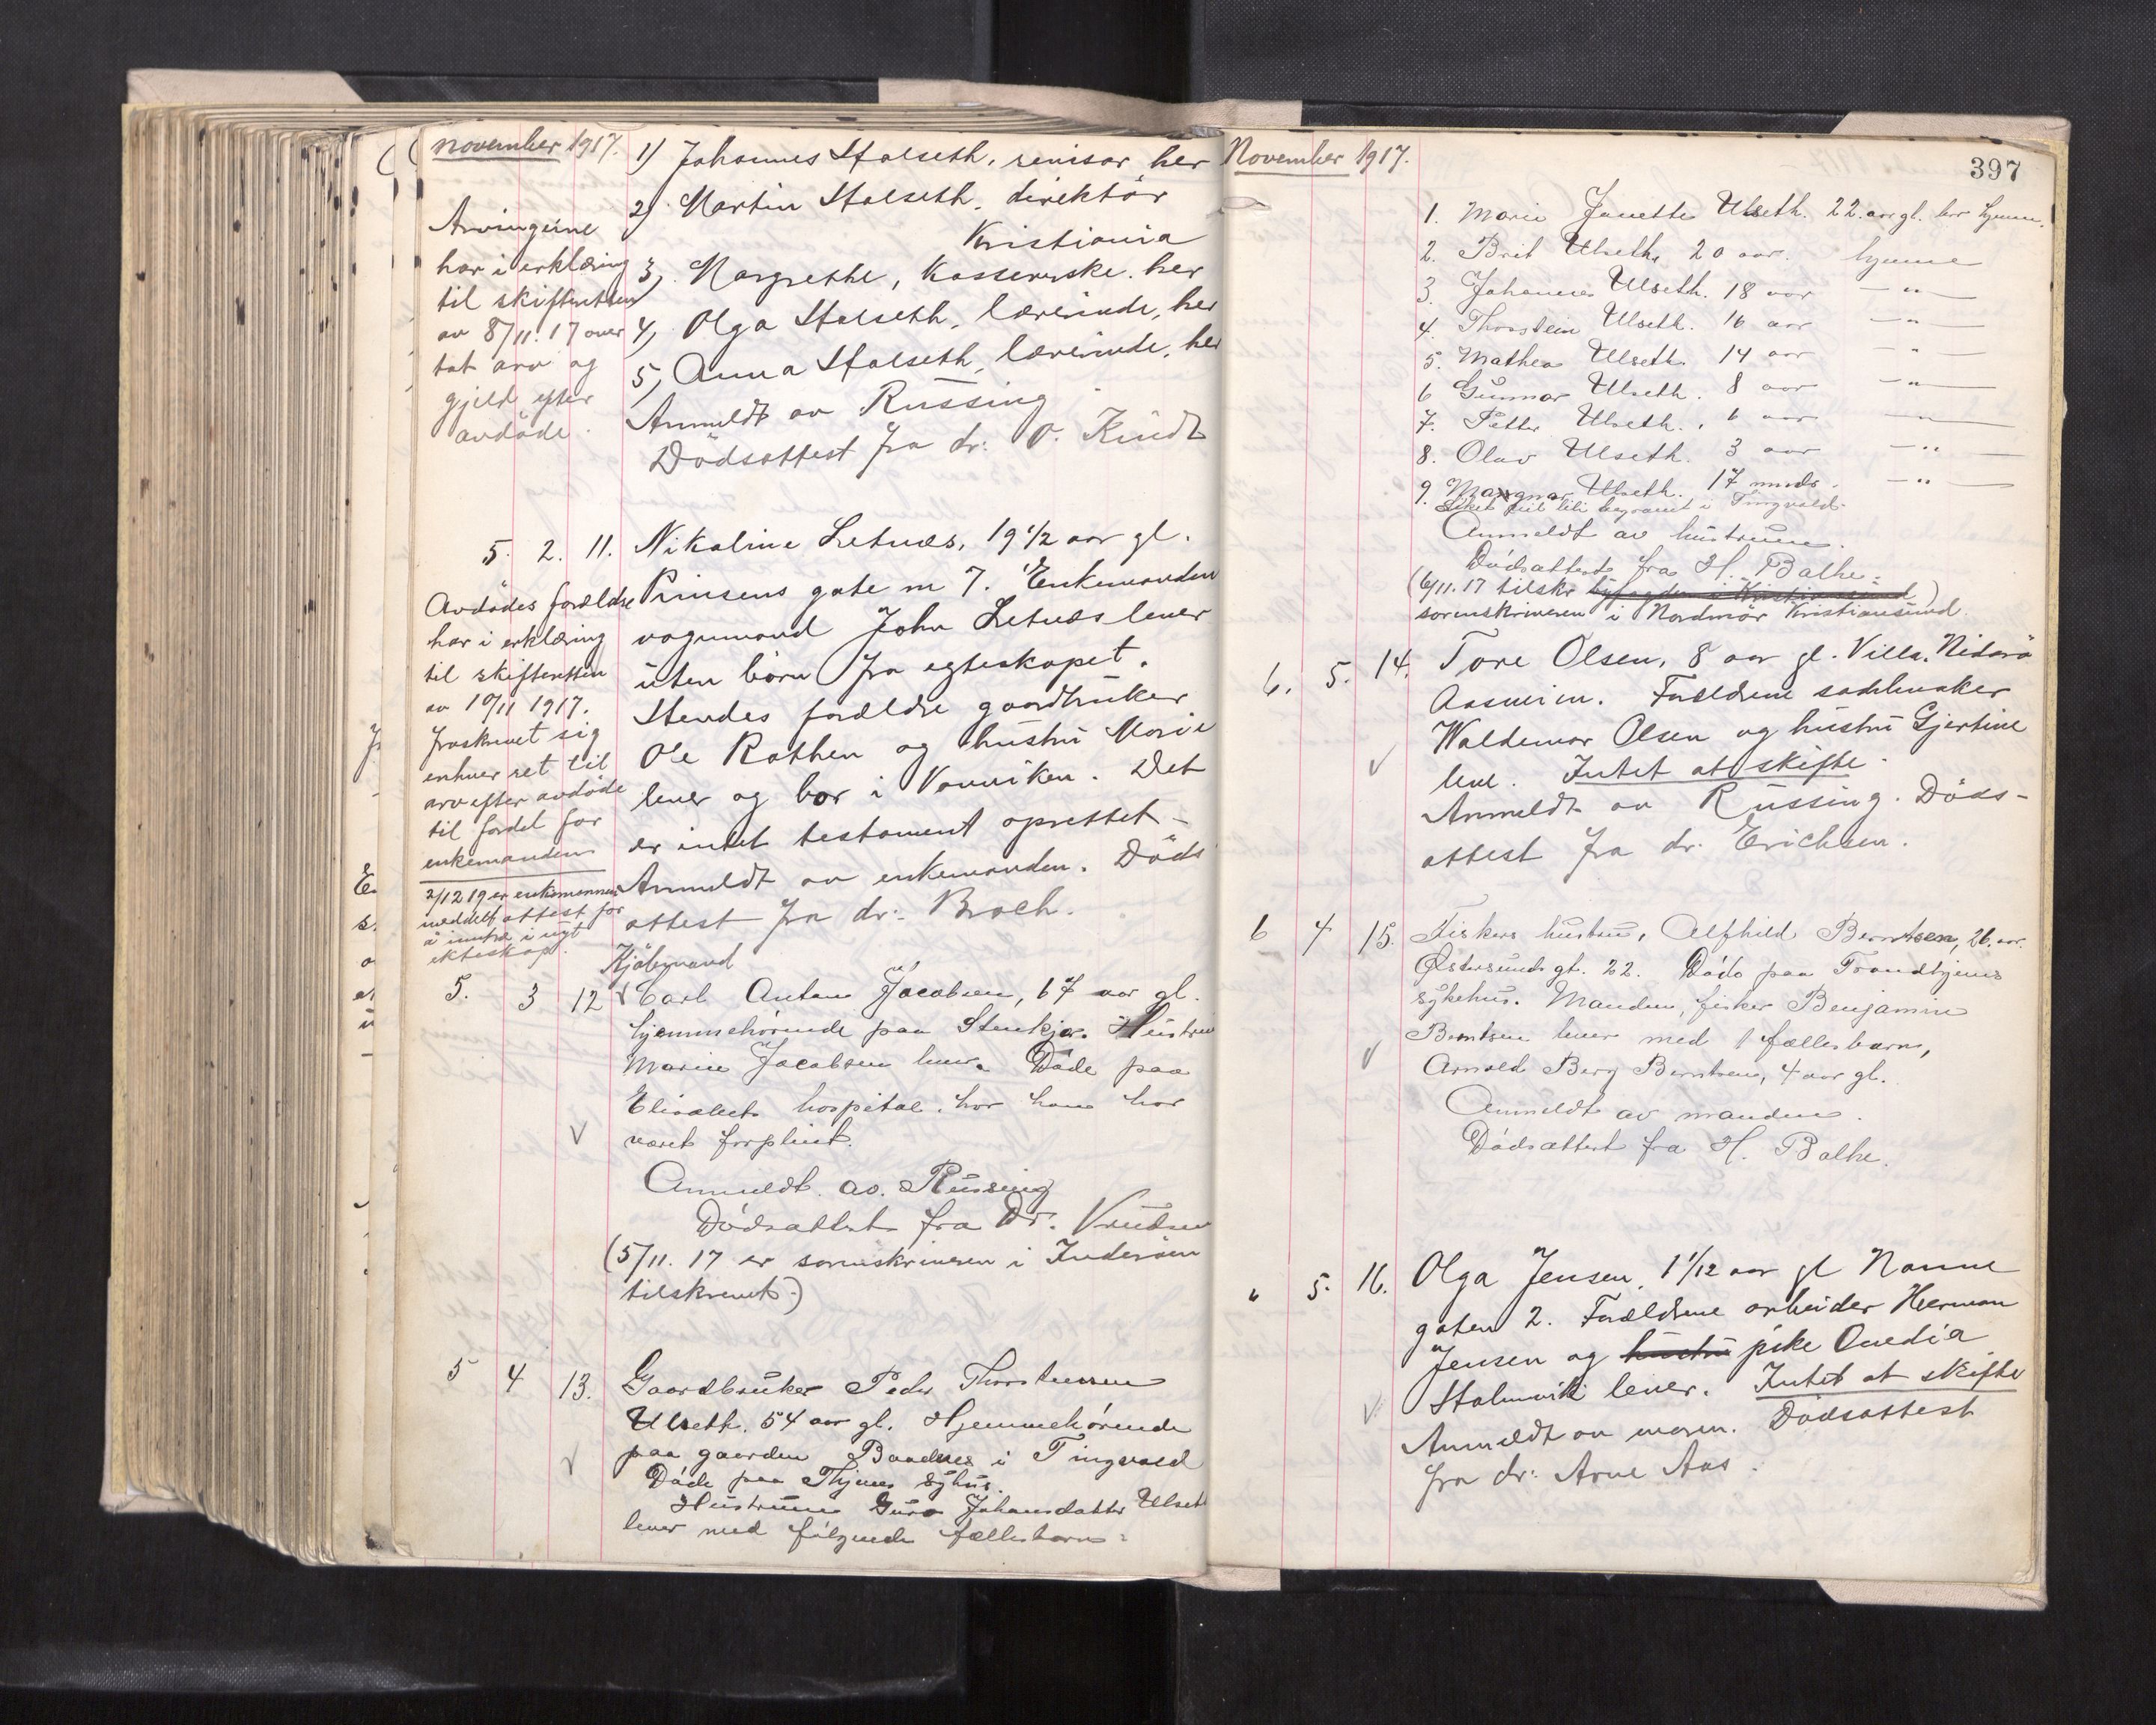 november 1917.
1) Johannes Stalseth, revisor her
2) Martin Stalseth, direktör
Kristiania
3, Margrethe, Kassererske. her
4, Olga Stalseth, lærerinde, her
5, Anna Stalseth, lærerinde, her
Anmeldt av Russing
Dödsattest fra dr: O. Kindt
Arvingerne
har i erklæring
til skifteretten
av 8/11. 17 over
tat arv og
gjeld efter
avdöde.
5. 2. 11. Nikaline Letnæs, 19 1/2 aar gl.
Prinsens gate nr 7. Enkemanden
vognmand John Letnæs lever
uten börn fra egteskapet.
Hendes forældre gaardbruker
Ole Rathen og hustru Marie
lever og bor i Vanviken. Det
er intet testament oprettet -
Anmeldt av enkemanden. Döds
attest fra dr: Broch.
Avdödes forældre
har i erklæring
til skifteretten
av 10/11 1917.
fraskrevet sig
enhver ret til
arv efter avdöde
til fordel for
enkemanden
2/12 19 er enkemannen
meddelt attest for
å inntre i nyt
ekteskap.
Kjöbmand
5. 3 12 Carl Anton Jacobsen, 67 aar gl.
hjemmehörende paa Stenkjær. Hustru
Marie Jacobsen lever. Döde paa
Elisabeth hospital, hvor han har
været forpleiet.
Anmeldt. av. Russing
Dödsattest fra Dr. Knudsen
(5/11. 17 er sorenskriveren i Inderöen
tilskrevet.)
5 4 13. Gaardbruker Peder Thorstensen
Ulseth. 54 aar gl. Hjemmehörende
paa gaarden Baadnes i Tingvold
Döde paa Thjems sykhus.
Hustruen Guro Johansdatter Ulseth
lever med fölgende fællesbarn:
November 1917.
397
1. Marie Janette Ulseth. 22. aar gl. her hjemme.
2. Brit Ulseth, 20 aar. hjemme
3. Johannes Ulseth. 18 aar - " -
4. Thorstein Ulseth. 16 aar - " -
5. Mathea Ulseth 14 aar - " -
6 Gunnar Ulseth. 8 aar - " -
7. Petter Ulseth. 6 aar - " -
8. Olav Ulseth. 3 aar - " -
9. Magnar Ulseth. 17 mnds. - " -
Liket vil bli begravet i Tingvold.
Anmeldt av hustruen.
Dödsattest fra H. Bathe.
(6/11. 17 tilskr byfogden i Kristiansund)
sorenskriveren i Nordmör Kristiansund.
6. 5. 14. Tore Olsen, 8 aar gl. Villa, Nidarö
Aasveien. Forældrene sadelmaker
Waldemar Olsen og hustru Gjertine
lever. Intet at skifte.
Anmeldt av Russing. Döds-
attest fra dr. Erichsen.
6 4 15. Fiskers hustru, Alfhild Berntsen, 26. aar.
Østersunds gt. 22. Döde paa Trondhjems
sykehus. Manden, fisker Benjamin
Berntsen lever med 1 fællesbarn,
Arnold Berg Berntsen, 4 aar gl.
Anmeldt av manden.
Dödsattest fra H. Bathe.
6 5. 16. Olga Jensen, 1 1/12 aar gl Nonne
gaten 2. Forældrene arbeider Herman
Jensen og hustru pike Ovedia
Stalmvik lever. Intet at skifte
Anmeldt av moren. Dödsattest
fra dr: Arne Aas.